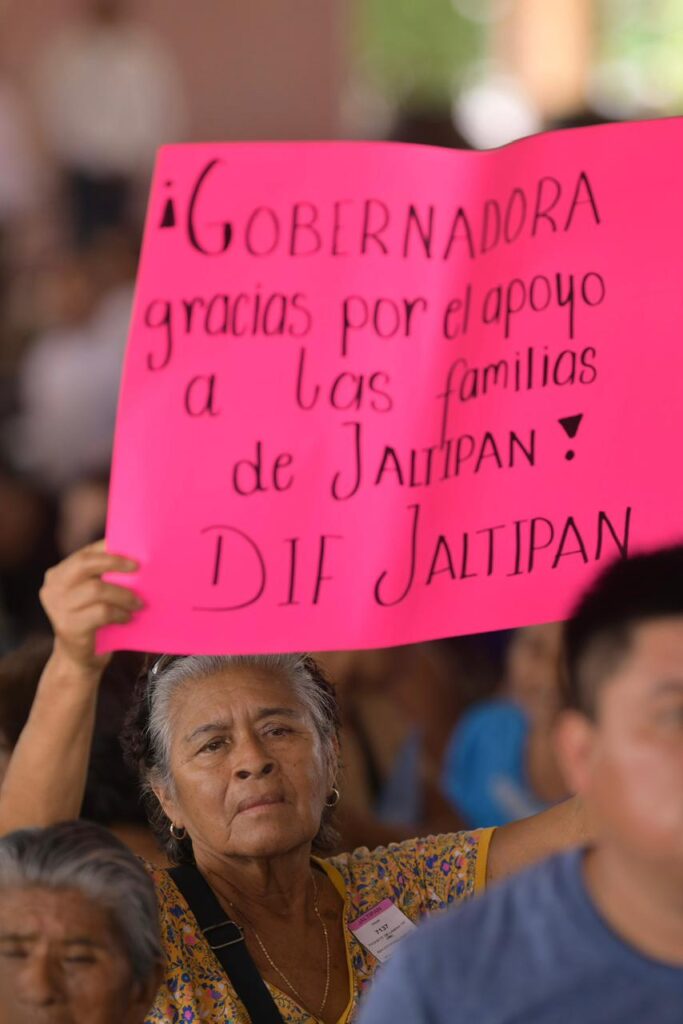 ¡GOBERNADORA
gracias por el apoyo
a las familias
de JALTIPAN!
DIF JALTIPAN
7137